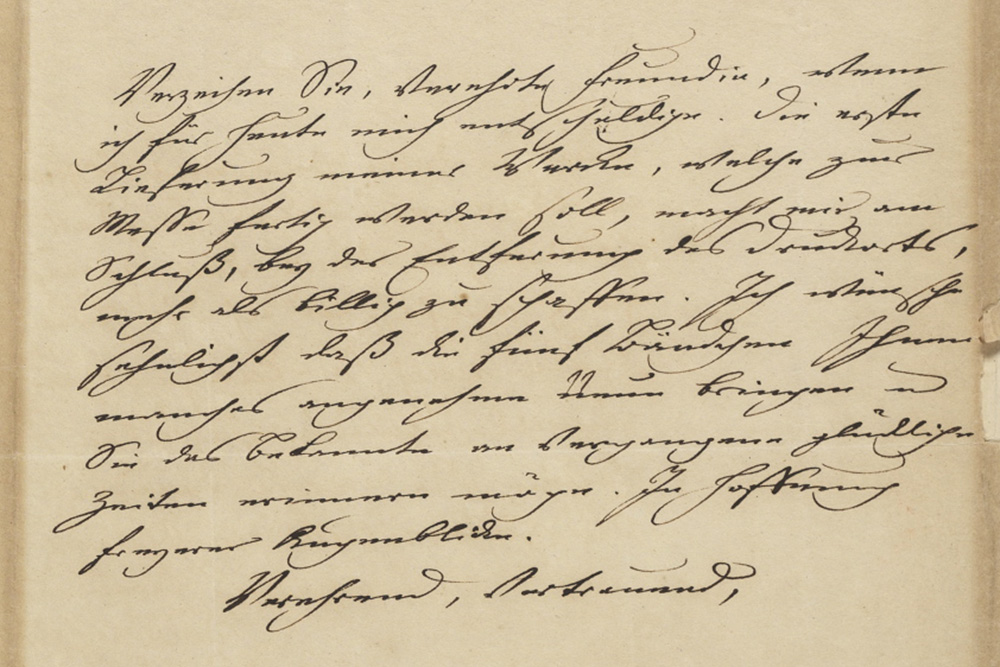 Verzeihen Sie, verehrte Freundin, wenn
ich für heute mich entschuldige. Die erste
Lieferung meiner Werke, welche zur
Messe fertig werden soll, macht mir am
Schluß, bey der Entfernung des Druckorts,
mehr als billig zu schaffen. Ich wünsche
sehnlichst daß die fünf Bändchen Ihnen
manches angenehme Neue bringen u
Sie das Bekannte an vergangene glückliche
Zeiten erinnern möge. In Hoffnung
freyerer Augenblicke.
Verehrend, Vertrauend,